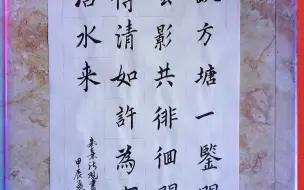 畝方塘一鑒開
雲影共徘徊問
得清如許為
活水来
朱熹詩觀書
甲辰夏